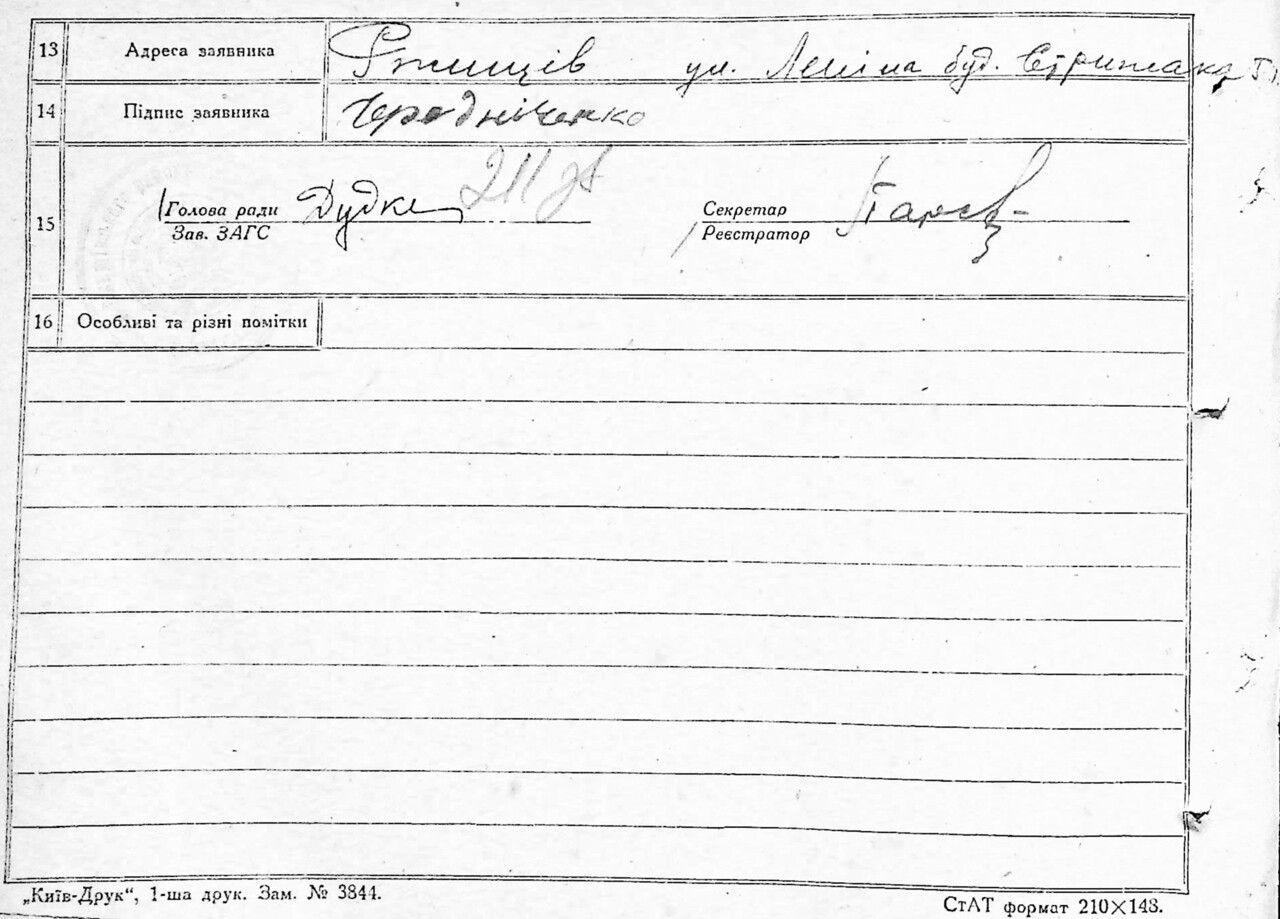 13 Адреса заявника Ржищів ул. Леніна буд. Стрижака
14 Підпис заявника Чередніченко
15 Голова ради Дудка Секретар
Зав. ЗАГС Реєстратор
16 Особливі та різні помітки
„Київ-Друк“, 1-ша друк. Зам. № 3844. СтАТ формат 210×148.